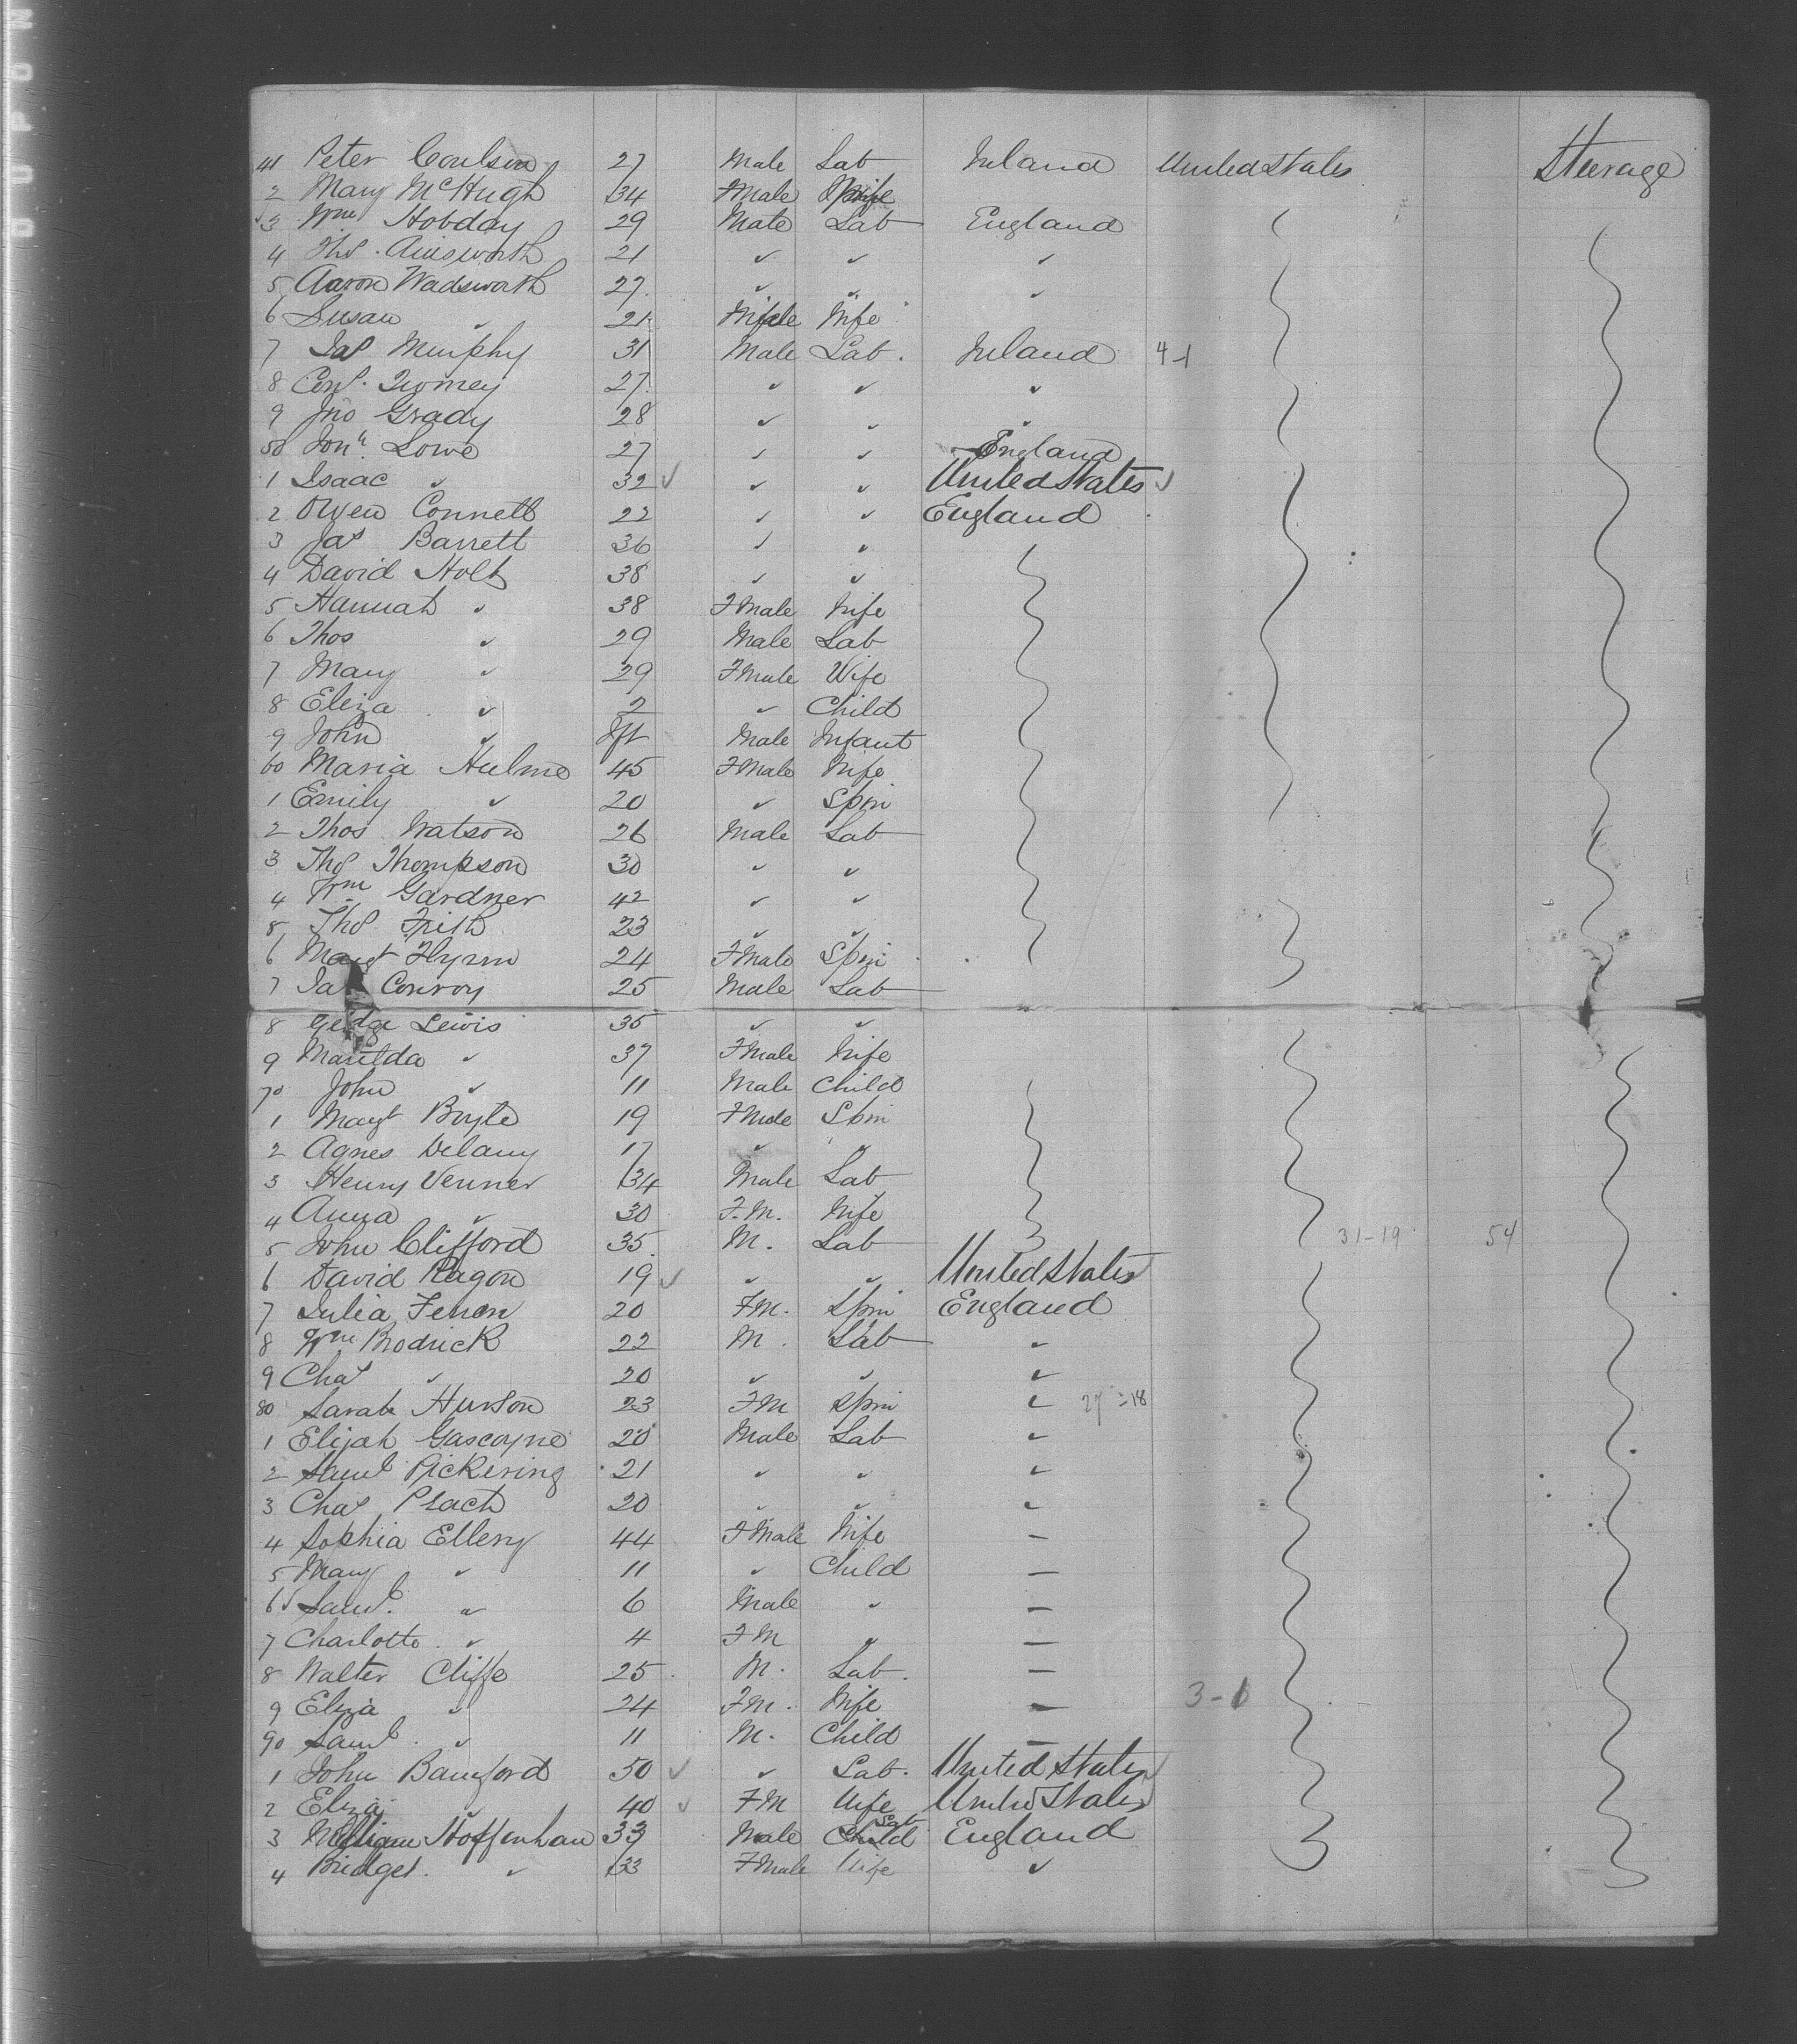 41 Peter Coulson 27 Male Lab Ireland United States Steerage
2 Mary McHugh 34 Fmale
3 Wm Hobday 29 Male Lab England
4 Thos. Ainsworth 21 " " "
5 Aaron Wadsworth 27 " " "
6 Susan " 21 Wife
7 Jas Murphy 31 Male Lab. Ireland 4-1
8 Cons. Twomey 27 " " "
9 Jno Grady 28 " " "
50 Jona. Lowe 27 " " England
1 Isaac " 32 ✓ " " United States ✓
2 Owen Connett 22 " " England
3 Jas Barrett 36 " "
4 David Holt 38 " "
5 Hannah " 38 Fmale Wife
6 Thos " 29 Male Lab
7 Mary " 29 Fmale Wife
8 Eliza " 2 " Child
9 John " Ift Male Infant
60 Maria Hulme 45 Fmale Wife
1 Emily " 20 " Spin
2 Thos Watson 26 Male Lab
3 Thos Thompson 30 " "
4 Wm Gardner 42 " "
5 Thos Frith 23 " "
6 Margt Flynn 24 Fmale Spin
7 Jas Conroy 25 Male Lab
8 Lewis 35 " "
9 Matilda " 37 Fmale Wife
70 John " 11 Male Child
1 Margt Boyle 19 Fmale Spin
2 Agnes Delany 17 " "
3 Henry Venner 34 Male Lab
4 Anna " 30 F.M. Wife
5 John Clifford 35 M. Lab 31-19 54
6 David Ragon 19 ✓ " " United States
7 Julia Fenon 20 FM. Spin England
8 Wm Brodrick 22 M. Lab "
9 Chas " 20 " " "
80 Sarah Hurson 23 FM Spin " 27-18
1 Elijah Gascoyne 20 Male Lab "
2 Saml Pickering 21 " " "
3 Chas Peach 20 " " "
4 Sophia Ellery 44 Fmale Wife —
5 Mary " 11 " Child —
6 Saml. " 6 Male " —
7 Charlotte " 4 FM " —
8 Walter Cliffe 25 M. Lab. —
9 Eliza " 24 FM. Wife — 3-1
90 Saml " 11 M. Child —
1 John Bamford 50 ✓ " Lab. United States ✓
2 Eliza " 40 ✓ FM Wife United States
3 William Hoffenhan 33 Male Child Lab England
4 Bridget. " 33 Fmale Wife "